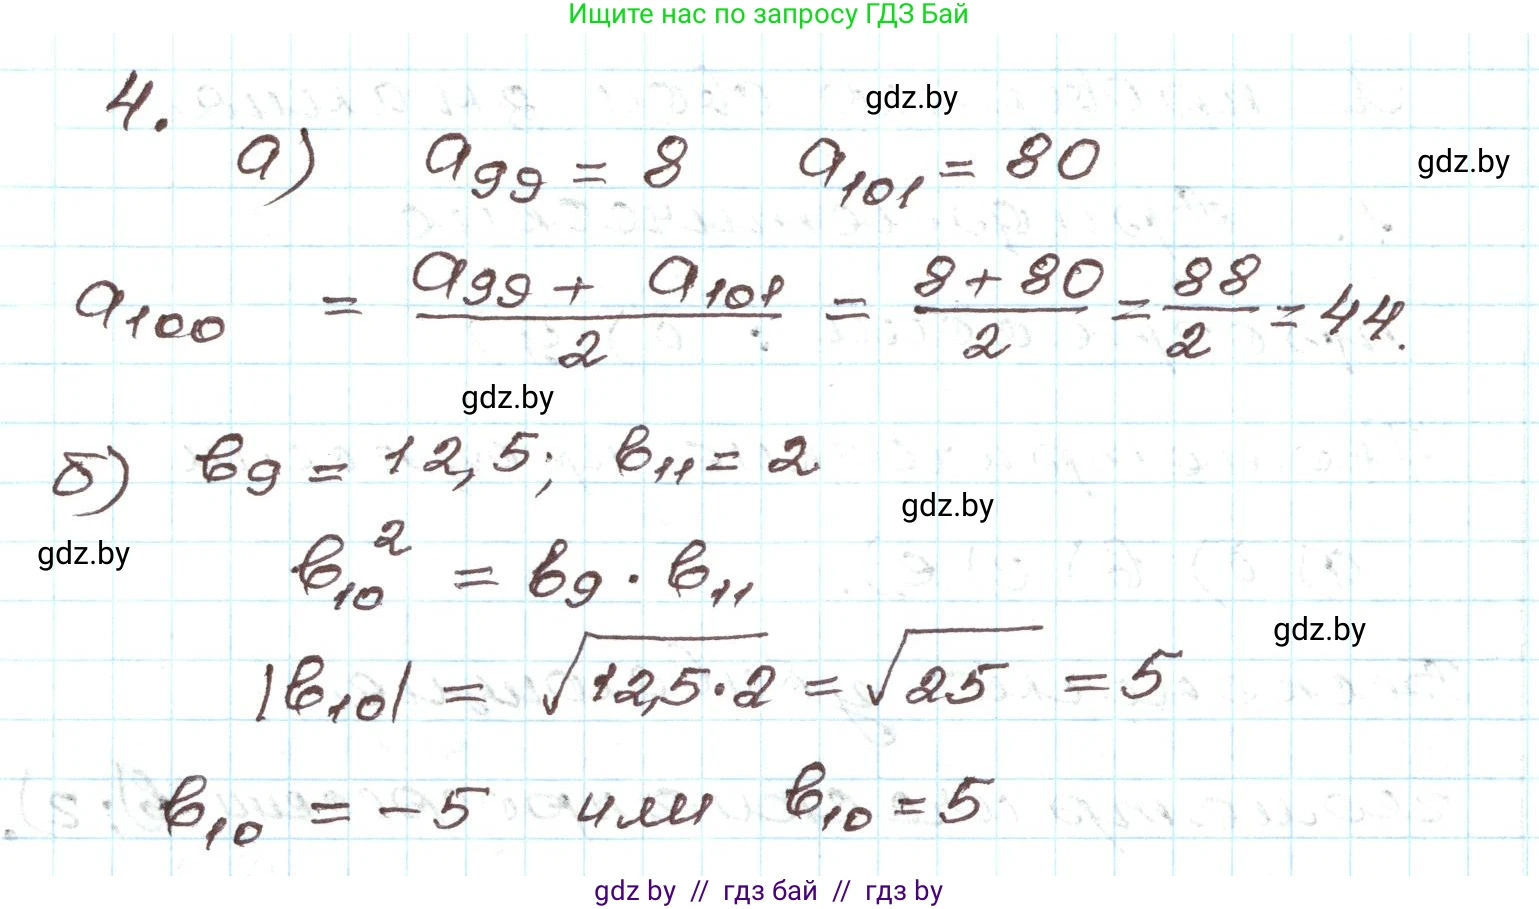 Ищите нас по запросу ГДЗ Бай
4.
gdz.by
а) a₉₉ = 8 a₁₀₁ = 80
gdz.by
a₁₀₀ = (a₉₉ + a₁₀₁)/2 = (8 + 80)/2 = 88/2 = 44.
gdz.by
б) b₉ = 12,5; b₁₁ = 2
gdz.by
gdz.by
b₁₀² = b₉ · b₁₁
gdz.by
|b₁₀| = √(12,5·2) = √25 = 5
b₁₀ = -5 или b₁₀ = 5
gdz by // гдз бай // гдз by